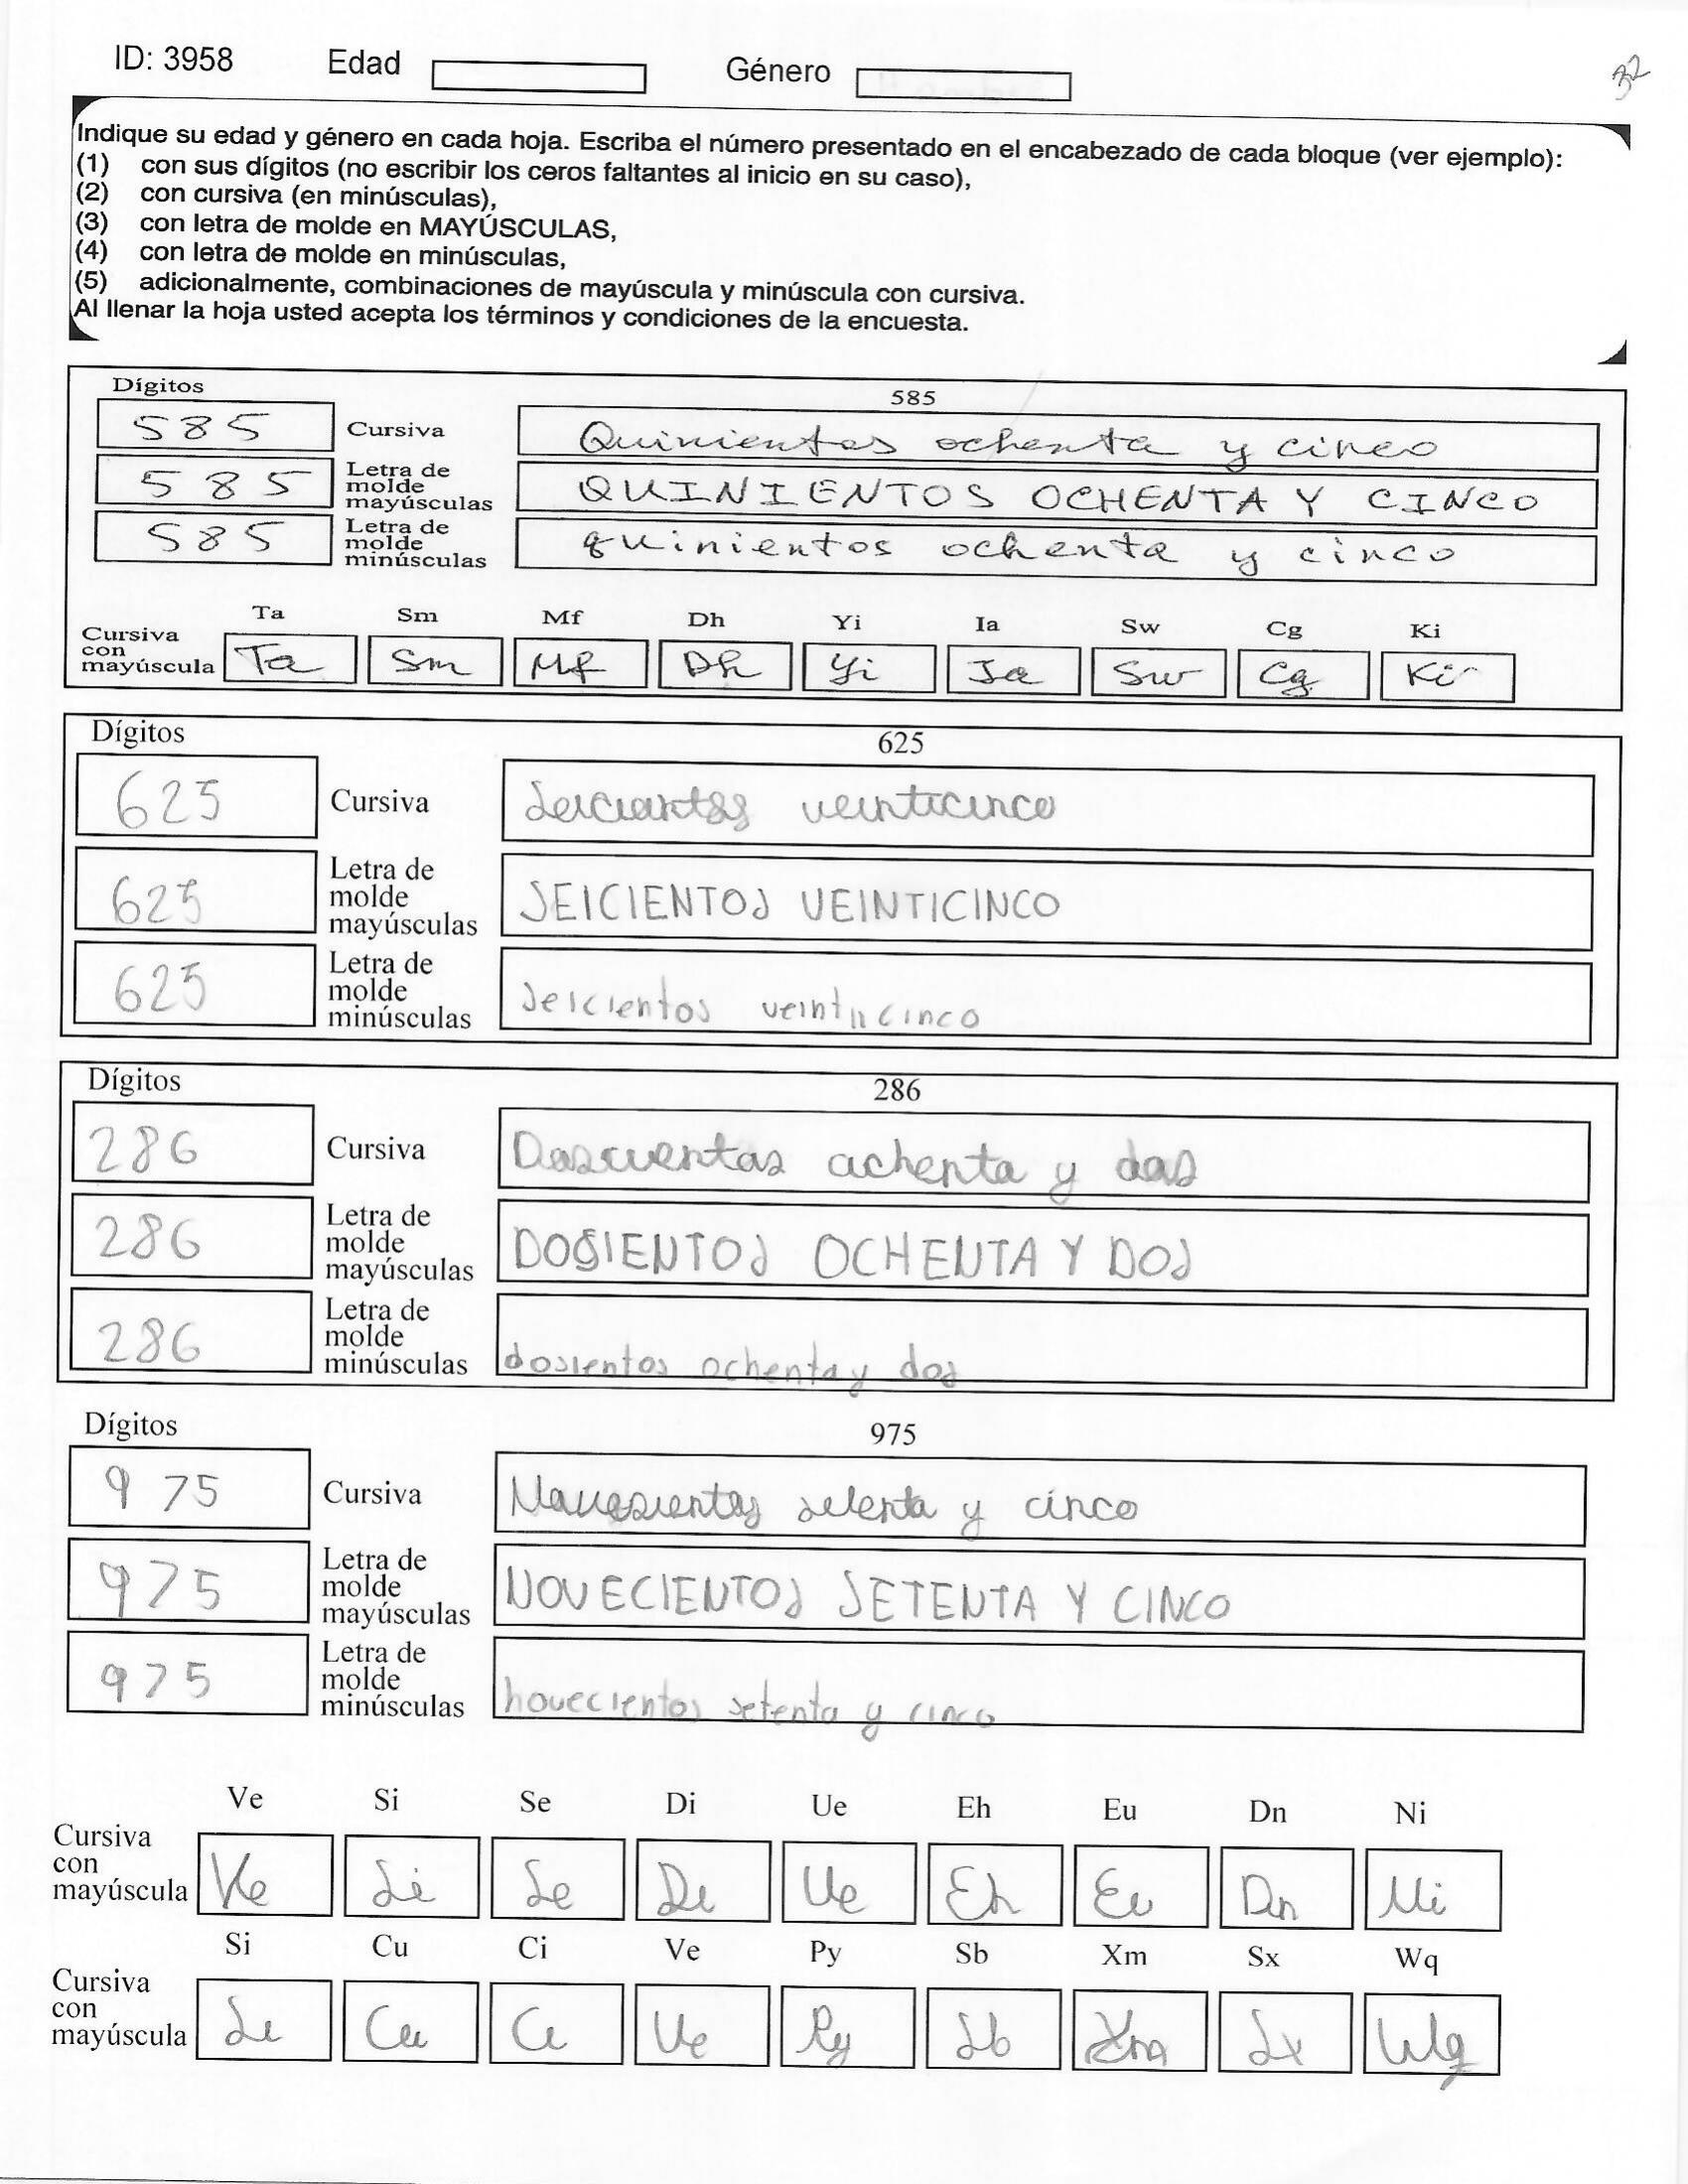 ID: 3958 Edad Género 32
Indique su edad y género en cada hoja. Escriba el número presentado en el encabezado de cada bloque (ver ejemplo):
(1) con sus dígitos (no escribir los ceros faltantes al inicio en su caso),
(2) con cursiva (en minúsculas),
(3) con letra de molde en MAYÚSCULAS,
(4) con letra de molde en minúsculas,
(5) adicionalmente, combinaciones de mayúscula y minúscula con cursiva.
Al llenar la hoja usted acepta los términos y condiciones de la encuesta.
Dígitos 585
585 Cursiva Quinientos ochenta y cinco
585 Letra de molde mayúsculas QUINIENTOS OCHENTA Y CINCO
585 Letra de molde minúsculas quinientos ochenta y cinco
Ta Sm Mf Dh Yi Ia Sw Cg Ki
Cursiva con mayúscula Ta Sm Mf Dh Yi Ia Sw Cg Ki
Dígitos 625
625 Cursiva Seicientos veinticinco
625 Letra de molde mayúsculas SEICIENTOS VEINTICINCO
625 Letra de molde minúsculas seicientos veintiicinco
Dígitos 286
286 Cursiva Doscientos ochenta y dos
286 Letra de molde mayúsculas DOSIENTOS OCHENTA Y DOS
286 Letra de molde minúsculas dosientos ochenta y dos
Dígitos 975
975 Cursiva Novesientos setenta y cinco
975 Letra de molde mayúsculas NOVECIENTOS SETENTA Y CINCO
975 Letra de molde minúsculas novecientos setenta y cinco
Ve Si Se Di Ue Eh Eu Dn Ni
Cursiva con mayúscula Ve Si Se Di Ue Eh Eu Dn Ni
Si Cu Ci Ve Py Sb Xm Sx Wq
Cursiva con mayúscula Si Cu Ci Ve Py Sb Xm Sx Wq